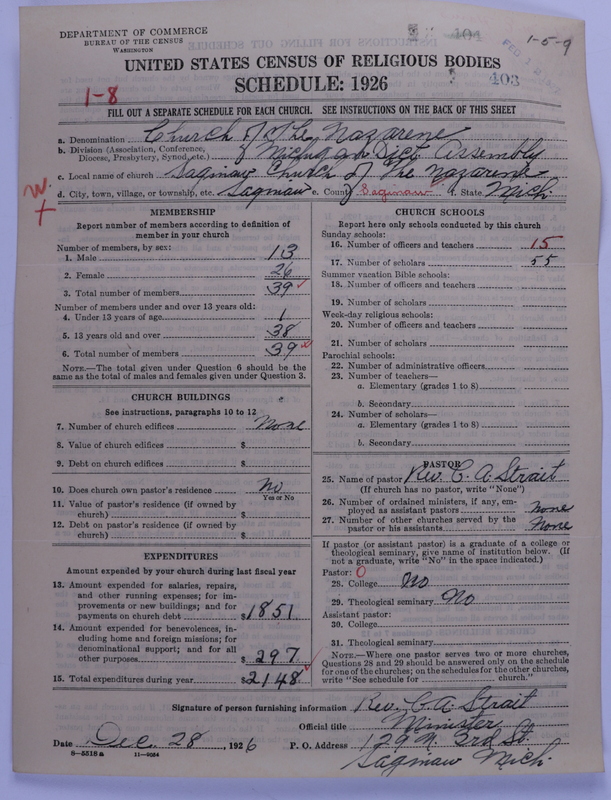 DEPARTMENT OF COMMERCE
BUREAU OF THE CENSUS
WASHINGTON
1-5-9
403
UNITED STATES CENSUS OF RELIGIOUS BODIES
SCHEDULE: 1926
1-8
FILL OUT A SEPARATE SCHEDULE FOR EACH CHURCH. SEE INSTRUCTIONS ON THE BACK OF THIS SHEET
a. Denomination Church of the Nazarene
b. Division (Association, Conference, Diocese, Presbytery, Synod, etc.) Michigan Dist Assembly
c. Local name of church Saginaw Church of The Nazarene
d. City, town, village, or township, etc. Saginaw e. County Saginaw f. State Mich
W.
+
MEMBERSHIP
Report number of members according to definition of member in your church
Number of members, by sex:
1. Male 13
2. Female 26
3. Total number of members 39
Number of members under and over 13 years old:
4. Under 13 years of age 1
5. 13 years old and over 38
6. Total number of members 39
NOTE.—The total given under Question 6 should be the same as the total of males and females given under Question 3.
CHURCH BUILDINGS
See instructions, paragraphs 10 to 12
7. Number of church edifices None
8. Value of church edifices $
9. Debt on church edifices $
10. Does church own pastor's residence No
Yes or No
11. Value of pastor's residence (if owned by church) $
12. Debt on pastor's residence (if owned by church) $
EXPENDITURES
Amount expended by your church during last fiscal year
13. Amount expended for salaries, repairs, and other running expenses; for improvements or new buildings; and for payments on church debt $1851
14. Amount expended for benevolences, including home and foreign missions; for denominational support; and for all other purposes $297
15. Total expenditures during year $2148
CHURCH SCHOOLS
Report here only schools conducted by this church
Sunday schools:
16. Number of officers and teachers 15
17. Number of scholars 55
Summer vacation Bible schools:
18. Number of officers and teachers
19. Number of scholars
Week-day religious schools:
20. Number of officers and teachers
21. Number of scholars
Parochial schools:
22. Number of administrative officers
23. Number of teachers—
a. Elementary (grades 1 to 8)
b. Secondary
24. Number of scholars—
a. Elementary (grades 1 to 8)
b. Secondary
PASTOR
25. Name of pastor Rev. C. A. Strait
(If church has no pastor, write "None")
26. Number of ordained ministers, if any, employed as assistant pastors None
27. Number of other churches served by the pastor or his assistants None
If pastor (or assistant pastor) is a graduate of a college or theological seminary, give name of institution below. (If not a graduate, write "No" in the space indicated.)
Pastor: 0
28. College No
29. Theological seminary No
Assistant pastor:
30. College
31. Theological seminary
NOTE.—Where one pastor serves two or more churches, Questions 28 and 29 should be answered only on the schedule for one of the churches; on the schedules for the other churches, write "See schedule for church."
Signature of person furnishing information Rev. C. A. Strait
Official title Minister
Date Dec. 28, 1926 P. O. Address 129 N. 3rd St.
Saginaw Mich.
8—5518a 11—9034